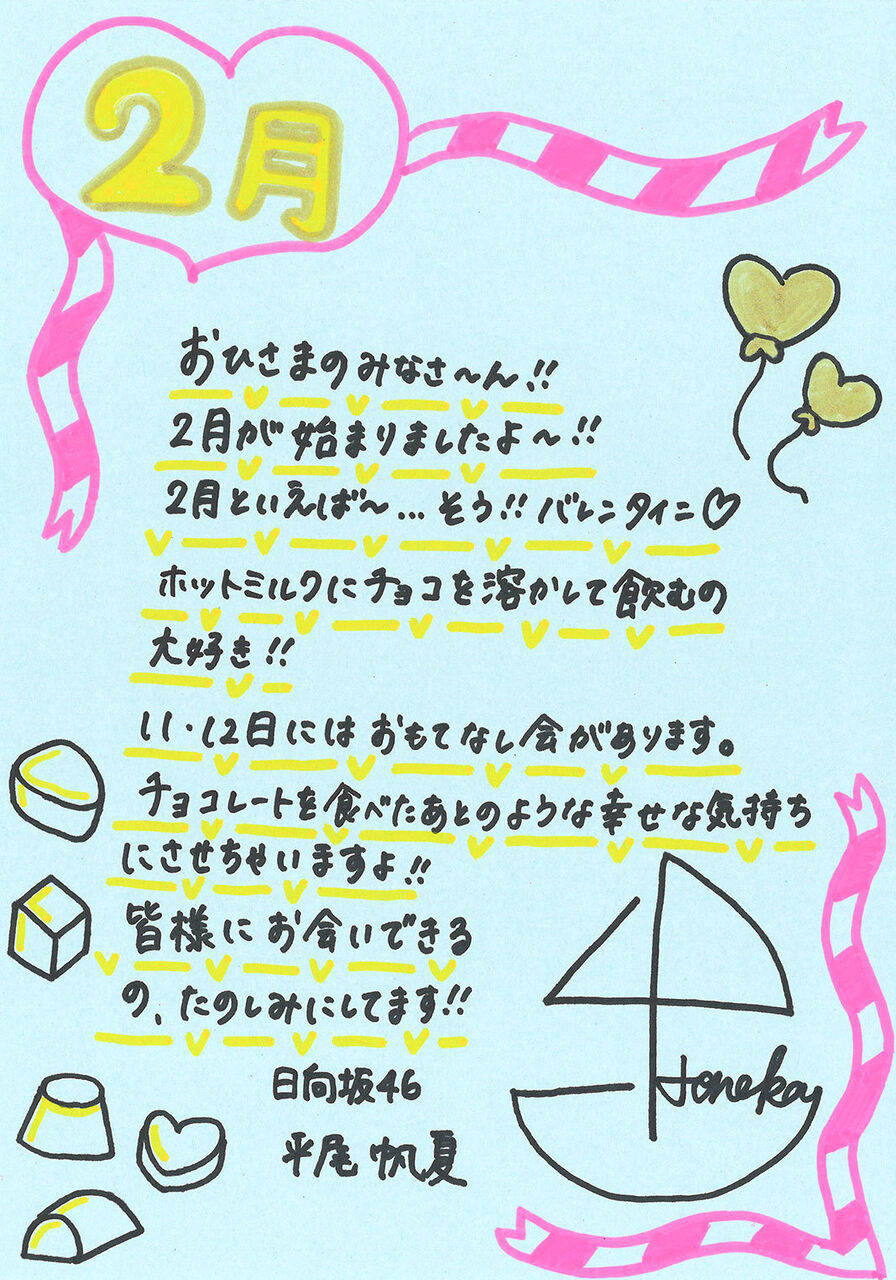 2月
おひさまのみなさ〜ん!!
2月が始まりましたよ〜!!
2月といえば〜...そう!!バレンタイン♡
ホットミルクにチョコを溶かして飲むの
大好き!!
11・12日にはおもてなし会があります。
チョコレートを食べたあとのような幸せな気持ち
にさせちゃいますよ!!
皆様にお会いできる
の、たのしみにしてます!!
日向坂46
平尾帆夏
Honoka